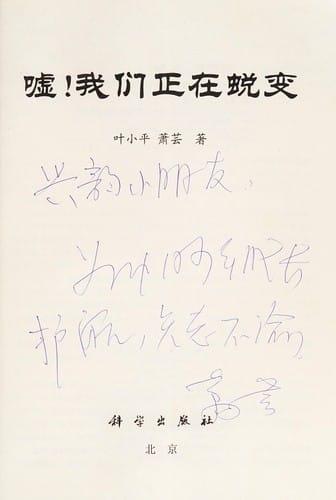 嘘！我们正在蜕变
叶小平 萧芸 著
兴韵小朋友，
为你的成长
护航，矢志不渝。
萧芸
科学出版社
北京